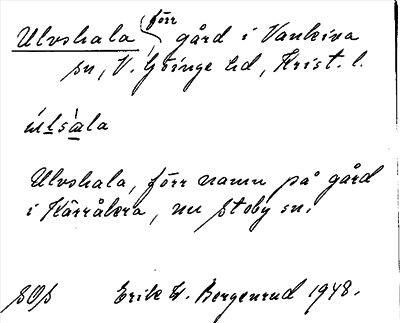 Ulvshala förr gård i Vankiva
sn, V. Göinge hd, Krist. l.
úlsàla
Ulvshala, förr namn på gård
i Kärråkra, nu Stoby sn.
SOS Erik W. Bergenrud 1948.